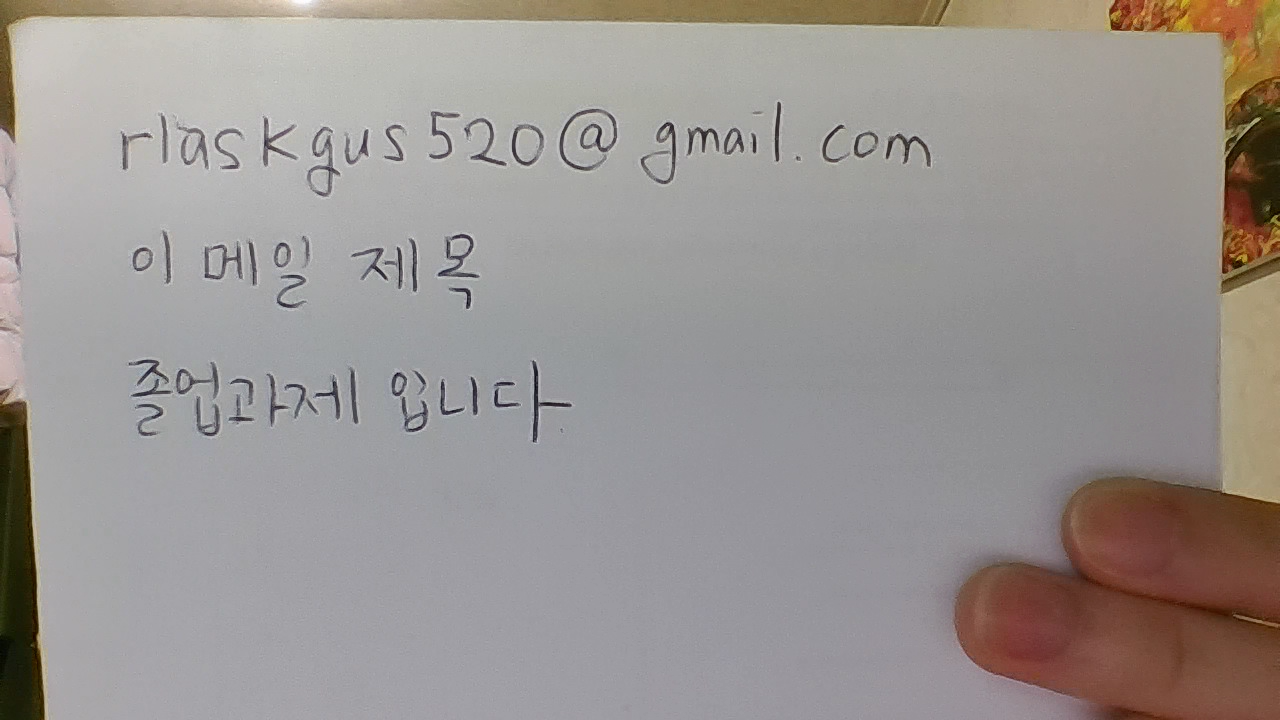 rlaskgus520@gmail.com
이메일 제목
졸업과제 입니다